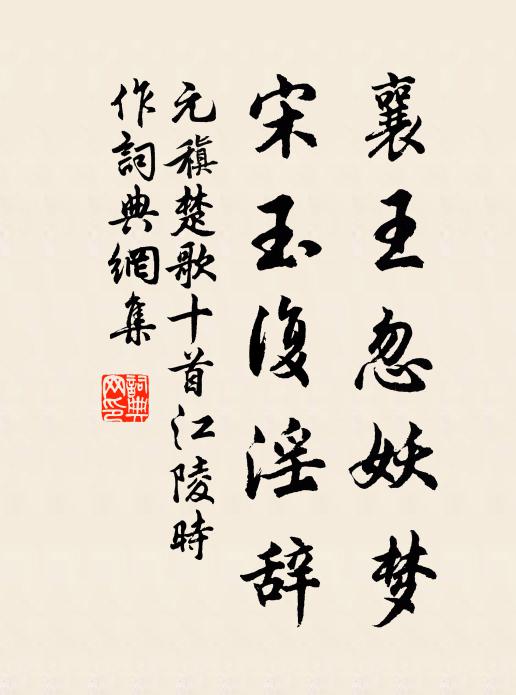 襄王忽妖梦
宋玉復淫辞
元稹楚歌十首江陵時
作詞典網集
詞典
网印